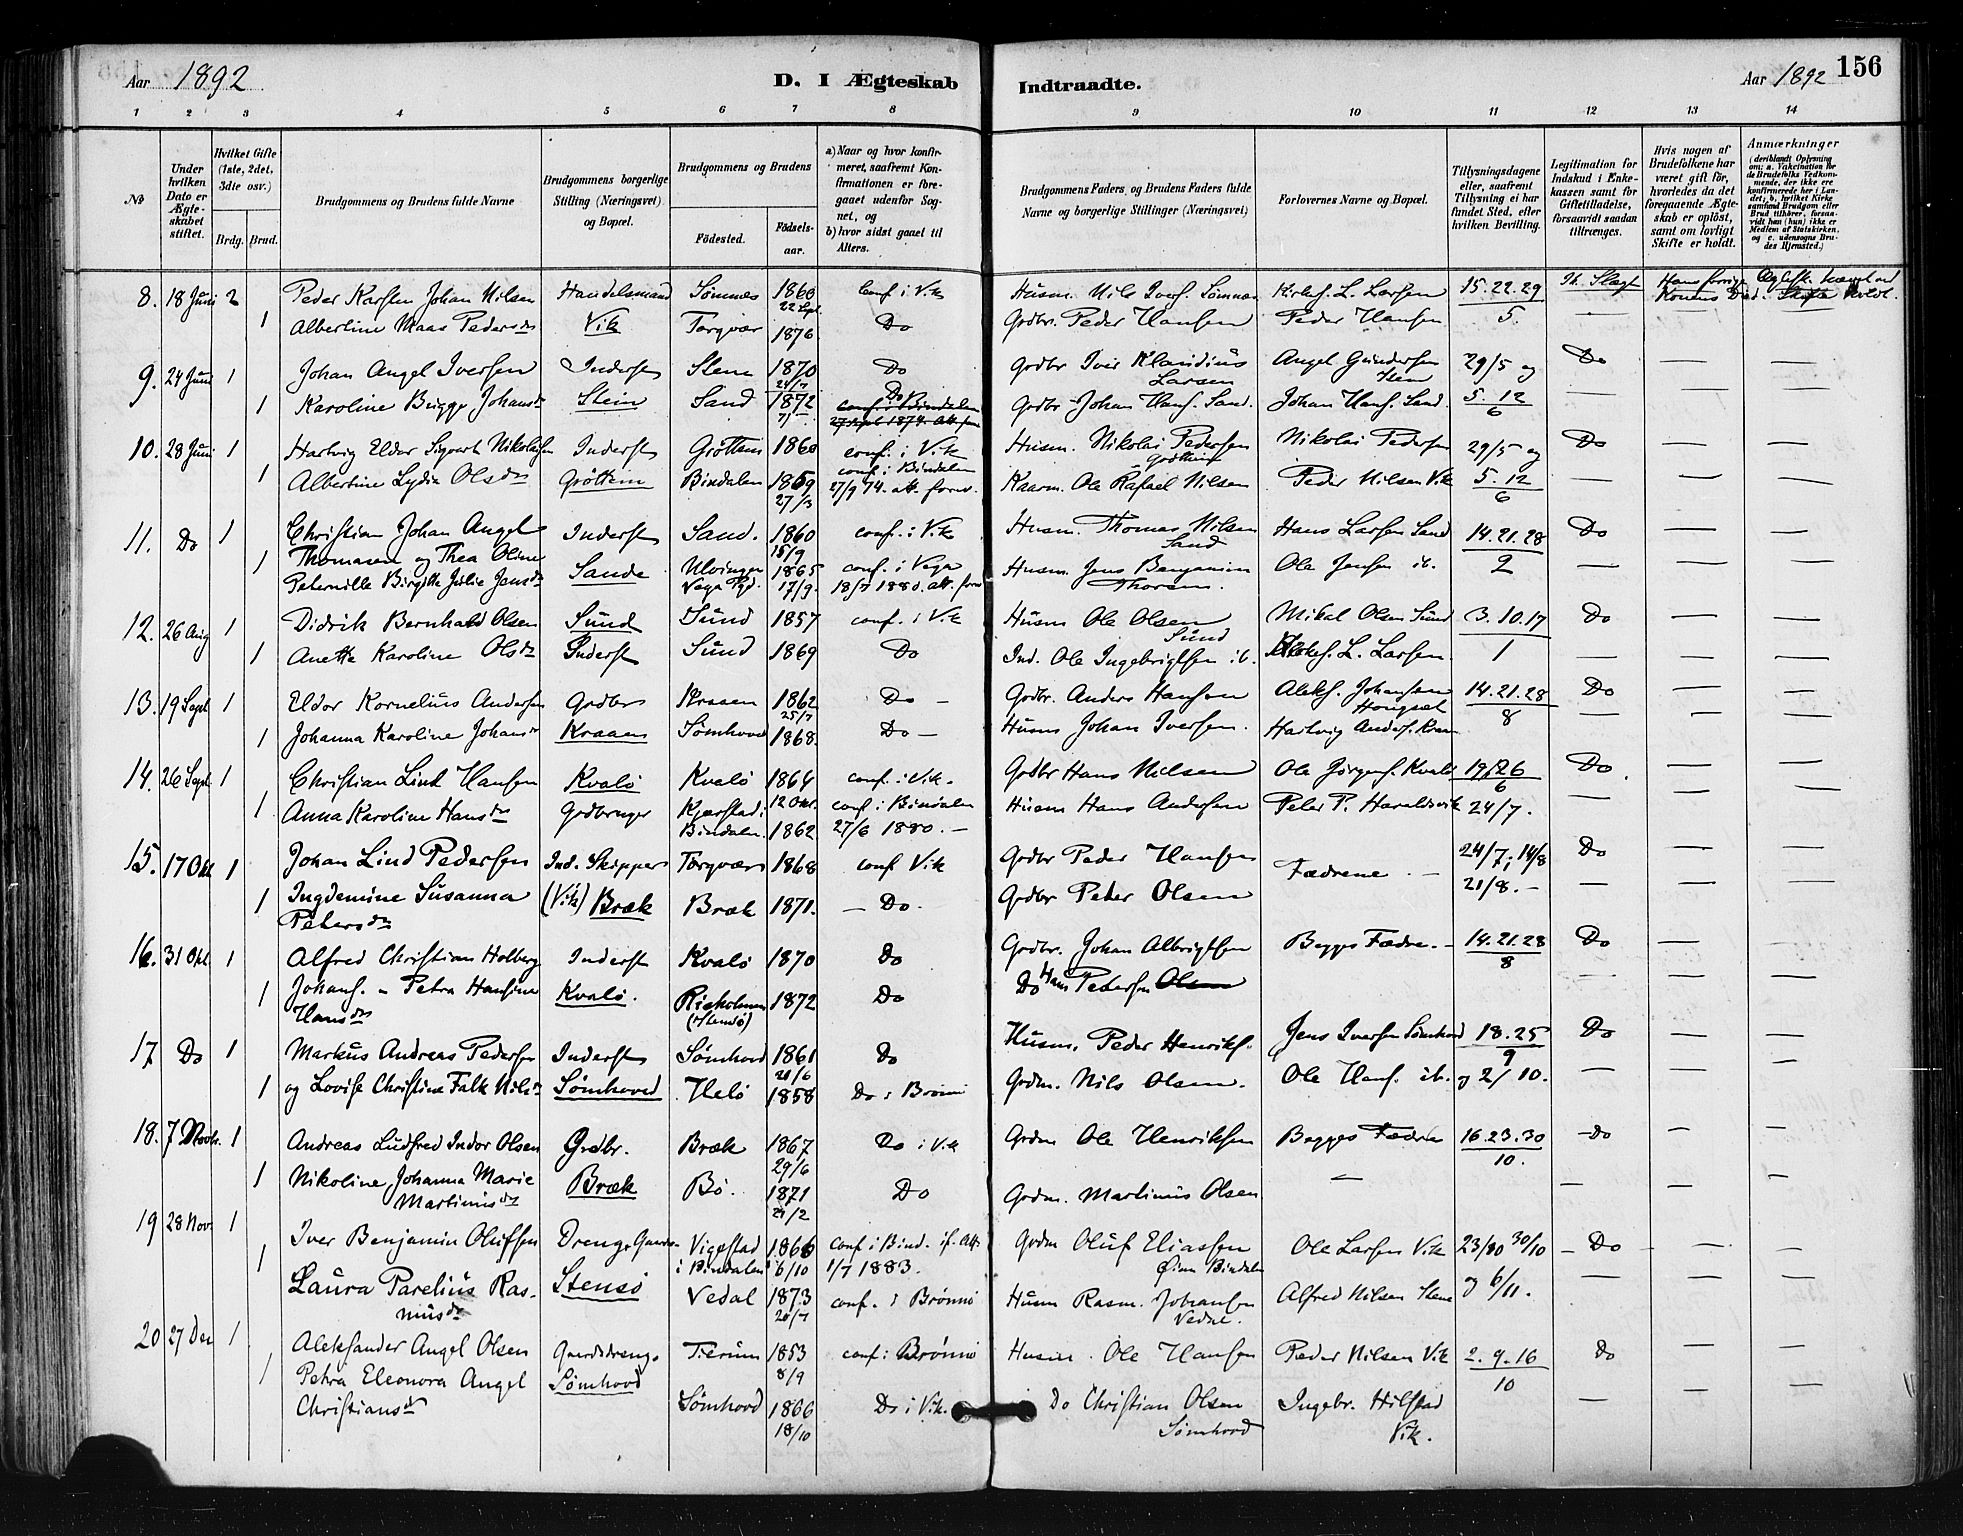 Aar 1892
D. I Ægteskab
Indtraadte.
Aar 1892
156
1 2 3 4 5 6 7 8 9 10 11 12 13 14
No
Under hvilken Dato er Ægteskabet stiftet.
Hvilket Gifte (1ste, 2det, 3die osv.)
Brdg. Brud.
Brudgommens og Brudens fulde Navne
Brudgommens borgerlige Stilling (Næringsvei) og Bopæl.
Brudgommens og Brudens
Fødested.
Fødselsaar.
a) Naar og hvor konfirmeret, saafremt Konfirmationen er foregaaet udenfor Sognet, og
b) hvor sidst gaaet til Alters.
Brudgommens Faders og Brudens Faders fulde Navne og borgerlige Stillinger (Næringsvei)
Forlovernes Navne og Bopæl.
Tillysningsdagene eller, saafremt Tillysning ei har fundet Sted, efter hvilken Bevilling.
Legitimation for Indskud i Enkekassen samt for Giftetilladelse, forsaavidt saadan tiltrænges.
Hvis nogen af Brudefolkene har været gift før, hvorledes da det foregaaende Ægteskab er opløst, samt om lovligt Skifte er holdt.
Anmærkninger
8. 18 Juni 2 Peder Karsten Johan Nilsen Handelsmand Sømnes 1860 Conf. i Vik Husm. Nils Iverf. Sømnes Kirkef. L. Larsen 15.22.29
1 Albertine Maas Pedersdtr Vik Torgvær 22 Spt. 1876 Do Grdbr. Peder Hansen Peder Hansen 5.
9. 24 Juni 1 Johan Angel Iversen Inderst Stem 1870 Do Grdbr Iver Klaudius Larsen Angel Gundersen Stem 29/5 og Do
1 Karoline Bugge Johansdtr Stein Sand 1872 Do Grdbr Johan Hanf. Sand. Johan Hanf. Sand. 5.12 6
10. 28 Juni 1 Hartvig Eldor Sigvart Nikolaisen Inderst Grøttem 1860 conf. i Vik Husm. Nikolai Pedersen Grøttem Nikolai Pedersen 29/5 og Do
1 Albertine Lydia Olsdtr Grøttem Bindalen 1859 27/3 conf. i Bindalen 27/9 74. att. forev. Kaarm. Ole Rafael Nilsen Peder Nilsen Vik 5.12 6
11. Do 1 Christian Johan Angel Inderst Sand. 1860 conf. i Vik Husm. Thomas Nilsen Sand Hans Larsen Sand 14.21.28 Do
1 Thomasen og Thea Oline Peternille Birgitte Julie Jensdtr Sande Ulvingen Vega Pgd. 15/9 1865 17/9. conf. i Vega 18/7 1880. att. forev Husm. Jens Benjamin Thorsen. Ole Jensen ib. 2
12. 26 Aug 1 Didrik Bernhard Olsen Sund Sund 1857 conf. i Vik Husm Ole Olsen Sund Mikal Olsen Sund 3.10.17 Do
1 Anette Karoline Olsdtr Inderst Sund 1869 Do Ind. Ole Ingebrigtsen ib. Kirkef. L. Larsen. 1
13. 19 Sept 1 Eldor Kornelius Andersen Grdbr Kraaen 1862 Do Grdbr. Anders Hansen Aleks. Johansen Hongset 14.21.28 Do
1 Johanna Karoline Johansdtr Kraaen Sømhovd 25/7 1868. Do Husm Johan Iversen. Hartvig Anderf. Kraaen 8
14. 26 Sept. 1 Christian Lind Hansen Kvalø Kvalø 1864 conf. i Vik. Grdbr Hans Nilsen Ole Jørgenf. Kvalø 19/26 6 Do
1 Anna Karoline Hansdtr Grdbruger Kjærstad i Bindalen. 12 Okt. 1862 conf. i Bindalen 27/6 1880. Husm Hans Andersen Peter P. Haraldsvik 24/7.
15. 17 Okt 1 Johan Lind Pedersen Ind. Skipper Torgvær 1868 conf Vik Grdbr Peder Hansen Fædrene. 24/7, 14/8 Do
1 Ingdemine Susanna Petersdtr (Vik) Bræk Bræk 1871. Do. Grdbr Peter Olsen 21/8.
16. 31 Okt. 1 Alfred Christian Holberg Inderst Kvalø 1870 Do Grdbr. Johan Albrigtsen Begges Fædre. 14.21.28 8 Do
1 Johanf. - Petra Hansine Hansdtr Kvalø. 1872 Do Do Hans Petersen Olsen
17 Do 1 Markus Andreas Pedersen Inderst Sømhovd 1861 Do Husm. Peder Henrikf. Jens Iversen Sømhovd 18.25 9 Do
1 og Lovise Christine Falk Nilsdtr Sømhoved Helø 21/6 1858 Do i Brønnø Grdm. Nils Olsen. Ole Hanf. ib. og 2/10.
18. 7 Novbr. 1 Andreas Ludfred Indor Olsen Grdbr. Bræk 1867 29/6 Do i Vik Grdm Ole Henriksen Begges Fædre 16.23.30 10. Do
1 Nikoline Johanna Marie Martinusdtr Bræk Bø. 1871 21/2 Do Grdm. Martinus Olsen
19 28 Nov. 1 Iver Benjamin Olufsen Drenge Gaards- Vigestad i Bindalen 1866 6/10 conf i Bind. if. Att. 1/7 1883. Grdm Oluf Eliassen Øien Bindalen Ole Larsen Vik 23/10 30/10 Do
1 Laura Parelius Rasmusdtr Stensø Vedal 1873 20/7 conf. i Brønnø Husm Rasm. Johansen Vedal. Alfred Nilsen Stensø og 6/11.
20 27 Dec 1 Aleksander Angel Olsen Gaardsdreng Tierum 1853 8/9 conf i Brønnø Husm. Ole Hansen Peder Nilsen Vik 2.9.16 10 Do
1 Petra Eleonora Angel Christiansdtr Sømhovd Sømhovd 1866 18/10 Do i Vik. Do Christian Olsen Sømhovd Ingebr. Hilstad Vik.